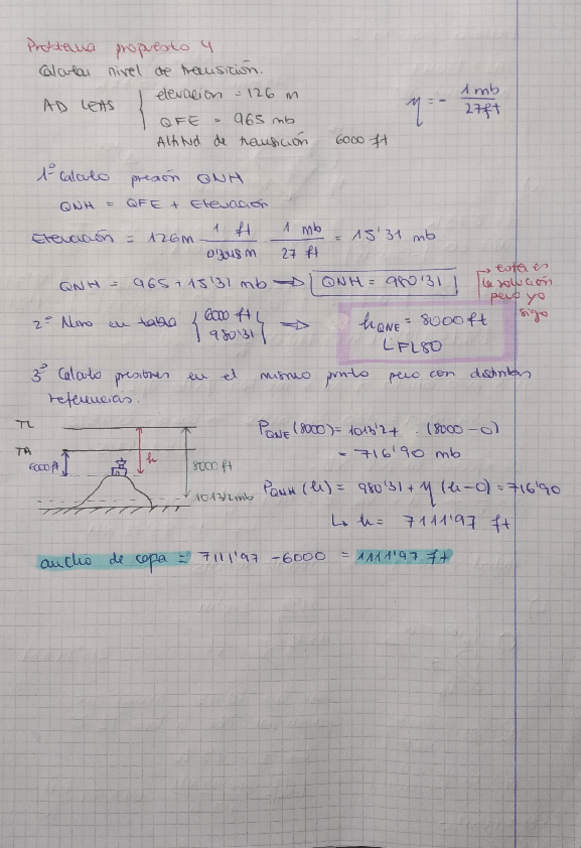 Problema propuesto 4
Calcular nivel de transición.
AD LEAS { elevacion = 126 m
QFE = 965 mb
Altitud de transición 6000 ft
η = - 1 mb / 27 ft
1º Calculo presión QNH
QNH = QFE + Elevación
Elevación = 126m 1 ft / 0'3048m 1 mb / 27 ft = 15'31 mb
QNH = 965 + 15'31 mb → QNH = 980'31
→ esta es
la solución
pero yo
sigo
2º Miro en tabla { 6000 ft
980'31 } → hQNE = 8000 ft
↳ FL80
3º Calculo presiones en el mismo punto pero con distintas
referencias.
TL
TA
6000 ft
h
8000 ft
1013'2 mb
PQNE (8000) = 1013'2 + . (8000 - 0)
= 716'90 mb
PQNH (h) = 980'31 + η (h - 0) = 716'90
↳ h = 7111'97 ft
ancho de capa = 7111'97 - 6000 = 1111'97 ft